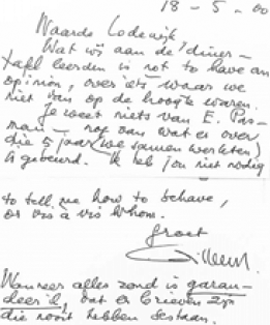 18-5-00
Waarde Lodewijk
Wat wij aan de diner-
tafel leerden is not to have an
opinion, over iets waar we
niet van op de hoogte waren.
Je weet niets van E. Pas-
man - nog van wat er over
die 5 jaar (we samen werkten)
is gebeurd. Ik heb jou niet nodig
to tell me how to behave,
or vis a vis whom.
groet
Willem.
Wanneer alles rond is garan-
deer ik, dat er brieven zijn
die nooit hebben bestaan.